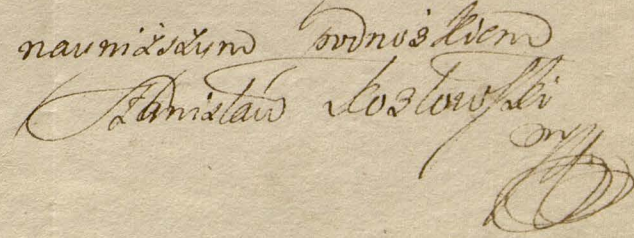 nayniższym podnóżkiem
Stanisław Kozłowski
mp